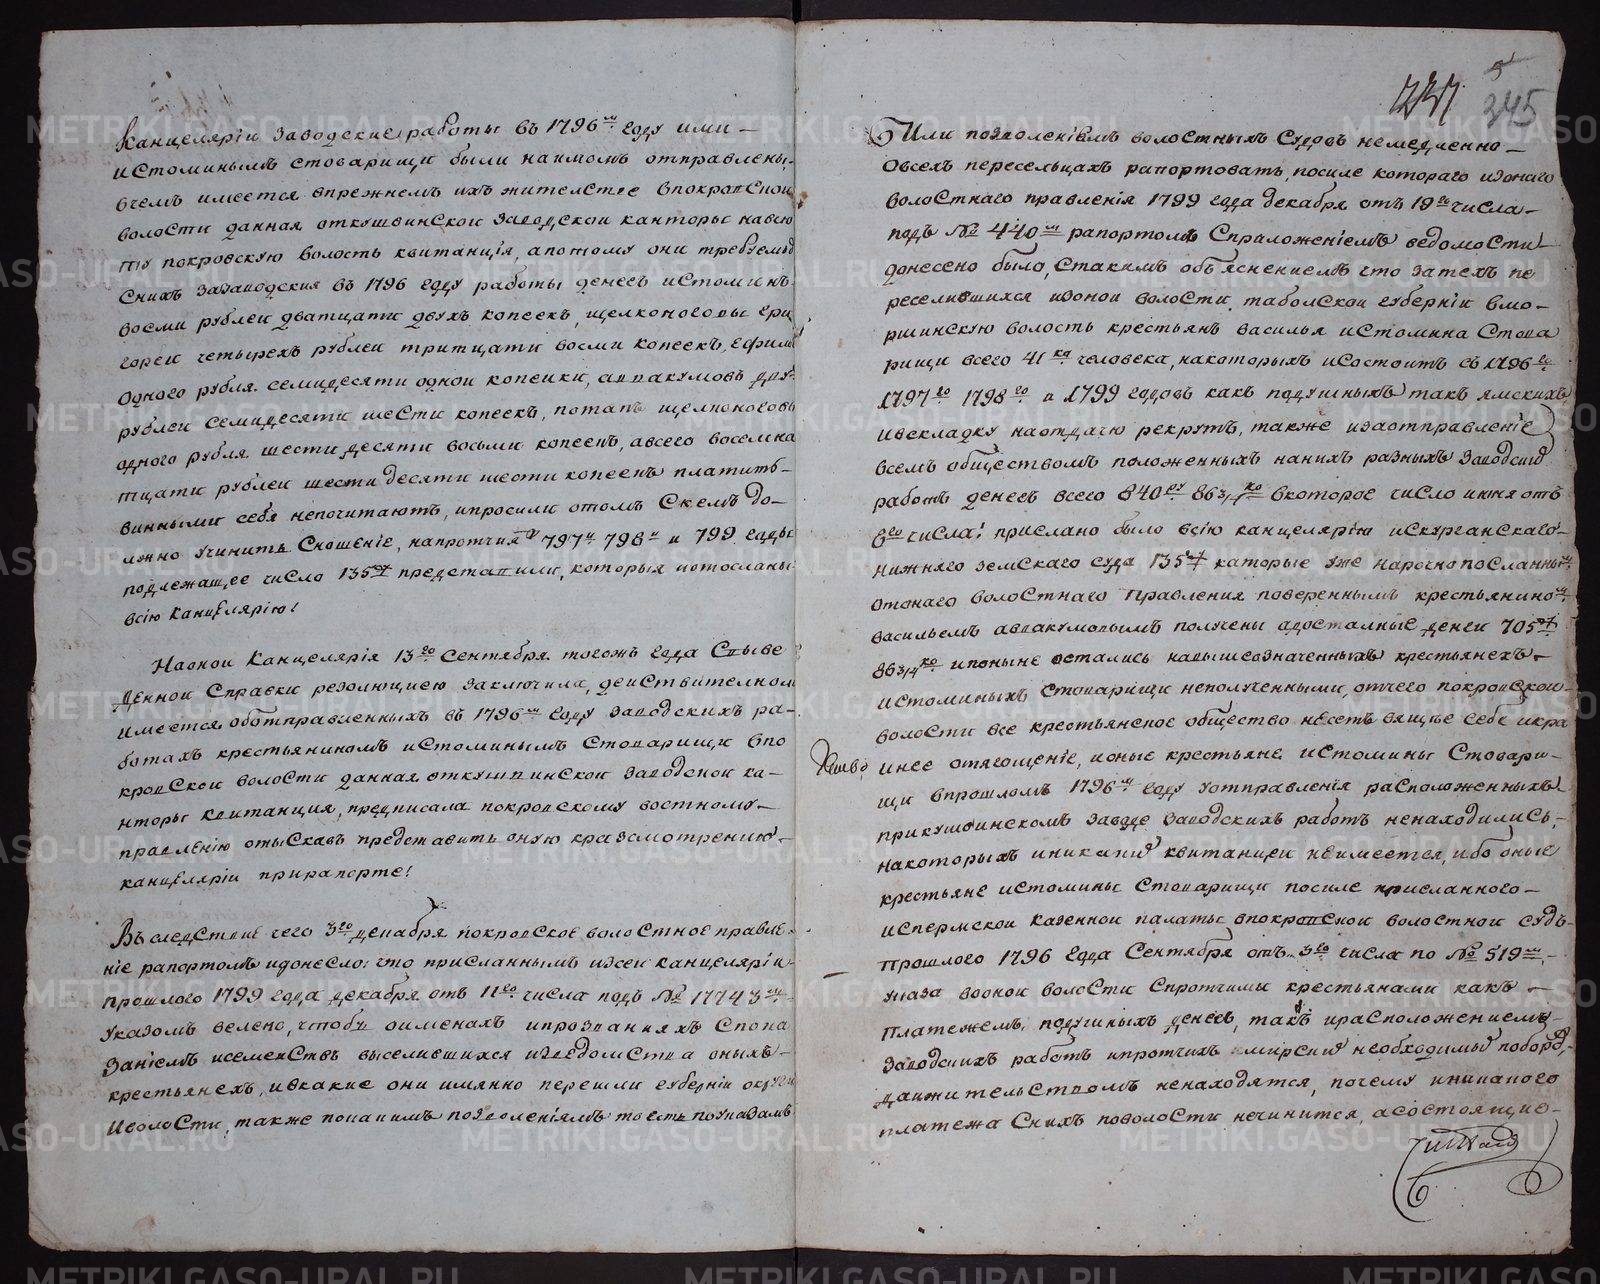 Канцелярїи заводские работы въ 1796м году ими —
истоминымъ стоварищи были наимомъ отправлены,
вчемъ имеется впрежнемъ ихъ жителстве впокровскои
волости данная откушвинскои заводскои канторы навсю
ту покровскую волость квитанцїя, апотому они требуемыхъ
Снихъ зазаводския въ 1796 году работы денегъ истоминъ
восми рублеи дватцати двухъ копеекъ, щелконоговы гри
гореи четырехъ рублеи тритцати восми копеекъ, ефимъ
одного рубля семидесяти однои копеики, аввакумовъ двухъ
рублеи семидесяти шести копеекъ, потапъ щелконоговъ
одного рубля шести десяти восьми копеекъ, авсего восемна
тцати рублеи шести десяти шести копеекъ платить —
винными себя непочитаютъ, ипросили отомъ Скемъ до —
лжно учинить Сношенїе, напротчия 797й 798й и 799 годы
подлежащее число 135ру представили, которыя иотосланы
всїю Канцелярїю!
Наонои Канцелярїя 13го Сентября тогожъ года Свыве
денной Справки резолюциею заключила, деиствителноли
имеется оботправленныхъ въ 1796м году заводскихъ ра —
ботахъ крестьяниномъ истоминымъ Стоварищи впо
кровскои волости данная откушвинскои заводскои ка —
нторы квитанция, предписала покровскому востному —
правленїю отыскавъ представить оную кразсмотрению —
канцелярїи прирапорте!
Въ следствие чего 3го декабря покровское волостное правле —
нїе рапортомъ идонесло: что присланнымъ изсеи канцелярїи
прошлого 1799 года декабря отъ 11го числа подъ № 17743м
указомъ велено, чтобы оименахъ ипрозванияхъ Спока
занїемъ исемеиствъ выселившихся изведомства оныхъ —
крестьянехъ, ивкакие они имянно перешли губернїи округи
иволости, также покакимъ позволенїямъ тоесть поуказамъ
237 345
Или позволенїямъ волостныхъ Судовъ немедленно —
Овсехъ пересельцахъ рапортовать, посиле котораго изонаго
волостнаго правленїя 1799 года декабря отъ 19го числа —
подъ № 440м рапортомъ Сприложенїемъ ведомости
донесено было, Стакимъ объясненїемъ что затехъ пе
реселившихся изонои волости таболскои губернїи вмо —
ршинскую волость крестьянъ василья истомина Стова
рищи всего 41ко человека, накоторыхъ исостоитъ съ 1796го
1797го 1798го и 1799 годовъ какъ подушныхъ такъ ямскихъ
ивскладку наотдачю рекрутъ, также изаотправленїе
всемъ обществомъ положенныхъ нанихъ разныхъ заводских
работъ денегъ всего 840ру 86 3/4ко вкоторое число июня отъ
6го числа: прислано было всїю канцелярїю искурганскаго —
нижняго земскаго суда 135ру каторые уже нарочно посланным
отонаго волостнаго правления повереннымъ крестьянином
васильемъ аввакумовымъ получены адосталные денги 705ру
86 3/4ко ипоныне остались навышеозначенныхъ крестьянехъ —
истоминыхъ Стоварищи неполученными, отчего покровскои —
волости все крестьянское общество несетъ вящее себе икра
инее отягощенїе, ионые крестьяне истомины Стовари —
щи впрошломъ 1796м году уотправленїя расположенныхъ
прикушвинскомъ заводе заводскихъ работъ ненаходились,
накоторыхъ иникакихъ квитанцеи неимеется, ибо оные
крестьяне истомины Стоварищи посиле присланного —
испермскои казеннои палаты впокровскои волостнои судъ
прошлого 1796 года Сентября отъ 3го числа по № 519м —
указа воонои волости Спротчими крестьянами какъ —
платежемъ подушныхъ денегъ, такъ ирасположениемъ
заводскихъ работъ ипротчихъ мирских необходимых поборов,
даижительствомъ ненаходятся, почему иникакого
платежа Снихъ поволости нечинится, асостоящие —